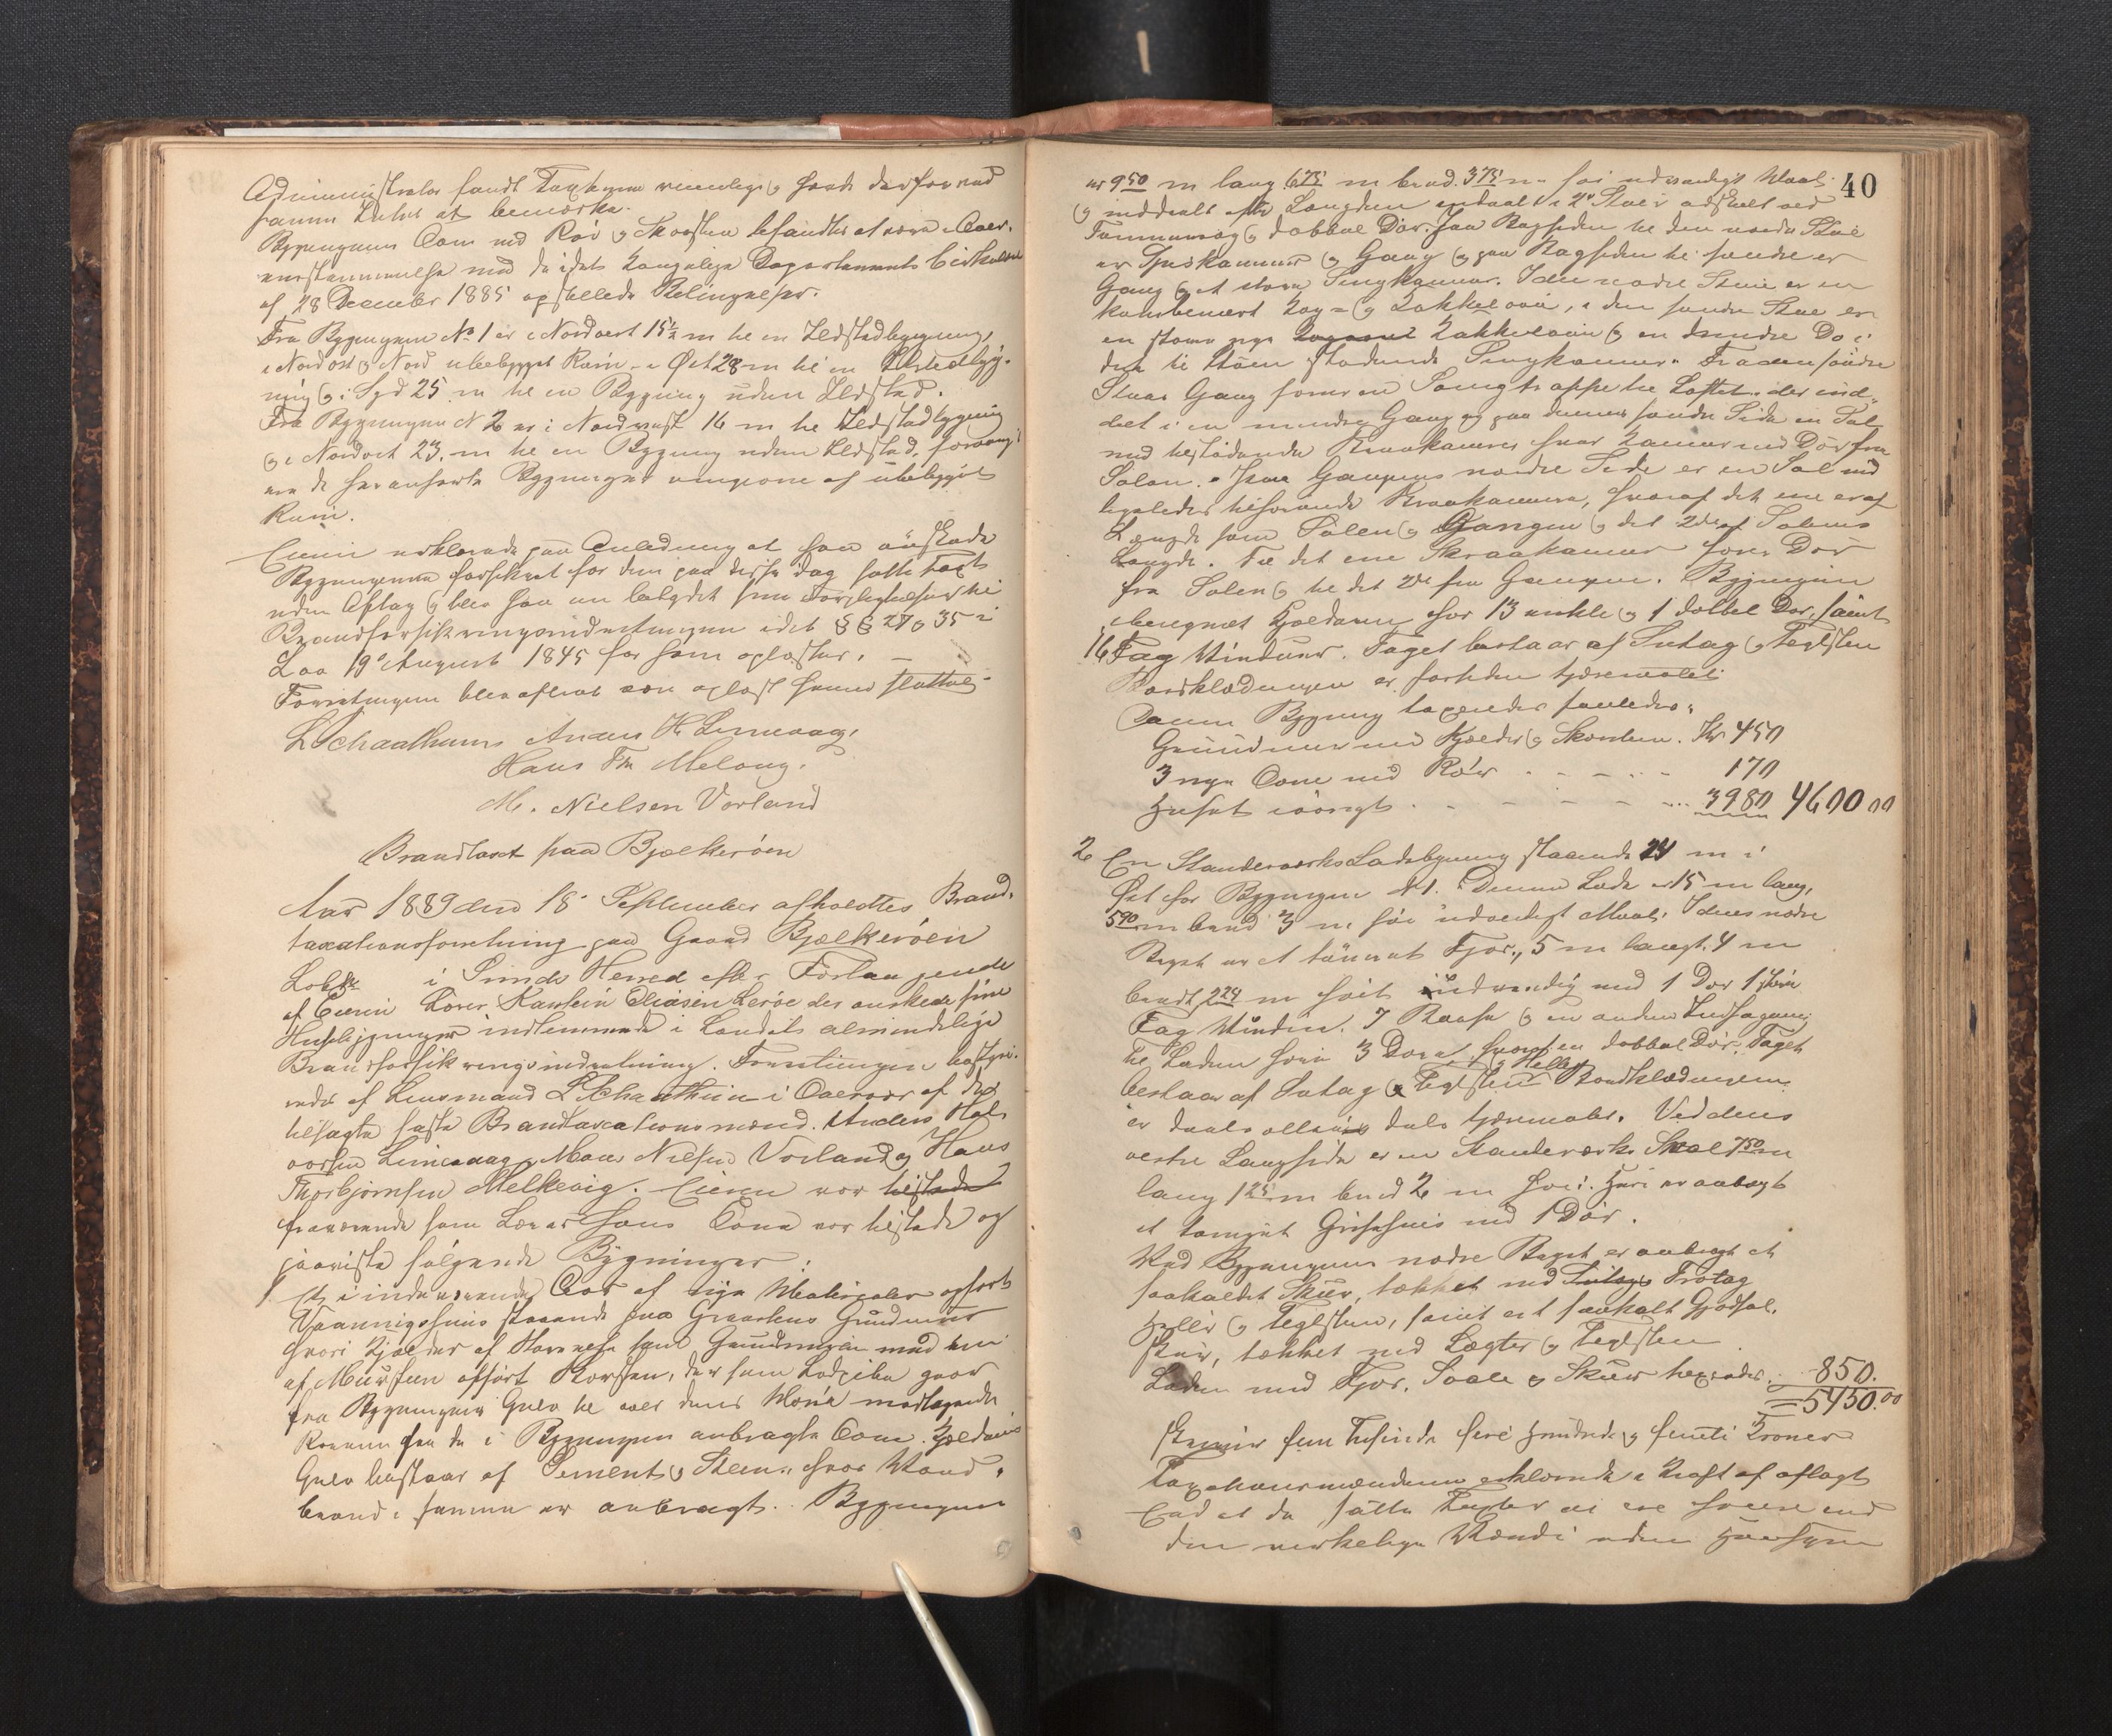 Administrator fandt Taxterne rimelige og havde derfor ved
samme Intet at bemærke.
Bygningens Ovne med Rør og Skorsten befandtes at være i Over-
ensstemmelse med de i det kongelige Departements Cirkulære
af 28 December 1885 opstillede Betingelser.
Fra Bygningen No 1 er i Nordvest 15½ m til en Ildstedbygning,
i Nordost og Nord ubebygget Rum. i Øst 28 m til en Ildstedbyg-
ning og i Syd 25 m til en Bygning uden Ildsted.
Fra Bygningen N 2 er i Nordvest 16 m til Ildstedbygning
og i Nordost 23 m til en Bygning uden Ildsted, forøvrigt
ere de heranførte Bygninger omgivne af ubebygget
Rum.
Eieren erklærede paa Anledning at han ønskede
Bygningerne forsikret for den paa disse i dag satte Taxt
uden Aftag og blev han om betydet sine Forpligtelser til
Brandforsikringsindretningen i det §§ 27 og 35 i
Lov 19 August 1845 for ham oplæstes.
Forretningen blev afleveret som oplæst herved sluttet.
L Schaathuns Anders H. Limevaag,
Hans Th Melvog.
M. Nielsen Vorland
Brandtaxt paa Bjelkerøen
Aar 1889 den 18 September afholdtes Brand-
taxationsforretning paa Gaard Bjelkerøen
Løbe No i Finds Herred efter Forlangende
af Eieren Lærer Karstein Eliasen Lerøe der ønskede sine
Husbygninger indlemmede i Landets almindelige
Brandforsikringsindretning. Forretningen bestyre-
redes af Lensmand L Schaathun i Overvær af de
tilsagte faste Brandtaxationsmænd. Anders Hal-
vorsen Limevaag, Mons Nielsen Vorland og Hans
Thorbjørnsen Melkevig. Eieren var tilstede
fraværende som Lærer hans Kone var tilstede og
paaviste følgende Bygninger:
1 Et i indeværende Aar af nye Materialer opført
Vaaningshuus staaende paa Graastens Grundmur
hvori Kjælder af Størrelse som Grundmuren med en
af Mursten opført Skorsten, der som Lodpibe gaar
fra Bygningens Gulv til over dens Møne modtagende
Rørene fra de i Bygningen anbragte Ovne. Kjælderens
Gulv bestaar af Cement og Steen, hvor Vand-
brønd i samme er anbragt. Bygningen
40
er 9 50 m lang 6 75 m bred 3 75 m høi udvendigt Maal
og inddeelt efter Længden i 2 Stuer adskilt ved
Tømmervæg og dobbel Dør. Paa Bagsiden til den nordre Stue
er Spiskammer og Gang og paa Bagsiden til søndre er
Gang og et større Sengkammer. I den nordre Stue er en
kombineret Kog- og Kakkelovn, i den søndre Stue er
en større nye Kakkelovn og en mindre Do i
det til Stuen stødende Sengkammer. Fra den søndre
Stues Gang fører en Svingtrappe til Loftet. der ind-
delt i en mindre Gang og paa dennes søndre Side en Sal
med tilstødende Kraakammer hver Kammer med Dør fra
Salen. Paa Gangens nordre Side er en Sal med
ligeledes tilhørende Kraakammer, hvoraf det ene er af
Længde som Salen og Gangen og det 2det af Salens
Længde. Til det ene Skraakammer fører Dør
fra Salen og til det 2det fra Gangen. Bygningen
iberegnet Kjælderen har 13 enkle og 1 dobbel Dør, samt
16 Fag Vinduer. Taget bestaar af Sutag og Teglsten
Bordklædningen er forsiden tjæremalet
Denne Bygning taxeredes saaledes:
Grundmur med Kjælder og Skorsten. Kr 450
3 nye Ovne med Rør - - - 170
Huset iøvrigt - - - - - 3980 4600 00
2 En Standerværks Ladebygning staaende 24 m i
Øst for Bygningen N 1. Denne Lade er 15 m lang,
5 90 m bred 3 m høi udvendigt Maal. I dens nordre
Bagst er et tømret Fjøs, 5 m langt, 4 m
bredt 2 24 m høit indvendig med 1 Dør 1 lidet
Fag Vindue. 7 Baase og en anden Indhegning
til Laden hører 3 Døre hvoraf en dobbel Dør. Taget
bestaar af Sutag og Teglsten & Heller Bordklædningen
er deels allene dels tjæremalet. Ved dens
vestre Langside er en Standerværks Sval 7 50 m
lang 1 25 m bred 2 m høi. Heri er anbragt
et tomt Grisehuus med 1 Dør.
Ved Bygningens nordre Bagst er anbragt et
saakaldet Skur, tækket med Sutag Trotag
Heller og Teglsten, samt et saakalt Gjødsel-
skur, tækket med Lægter og Teglsten
Laden med Fjøs, Svale og Skur taxeredes. 850.
= 5450.00
skriver fem Tusinde fire Hundrede og femti Kroner
Taxationsmændene erklærede i Kraft af aflagt
Eed at de satte Taxter ei ere høiere end
den virkelige Værdi uden Hensyn